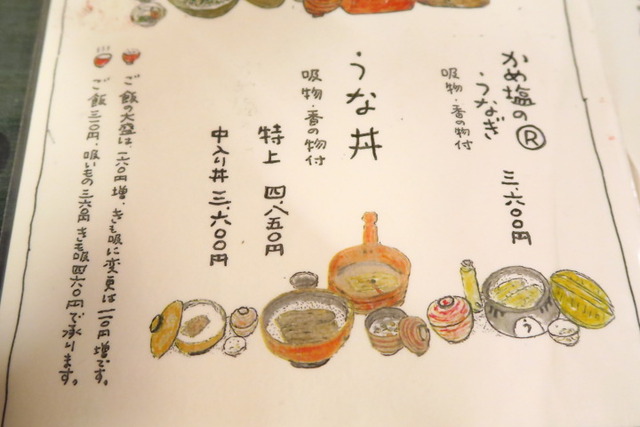 かめ塩の Ⓡ
うなぎ
吸物・香の物付
三、六〇〇円
うな丼
吸物・香の物付
特上 四、八五〇円
中入り丼 三、六〇〇円
ご飯の大盛は、一六〇円増、きも吸に変更は一一〇円増です。
ご飯 三一〇円、吸いもの 三六〇円 きも吸 四六〇円で承ります。
う